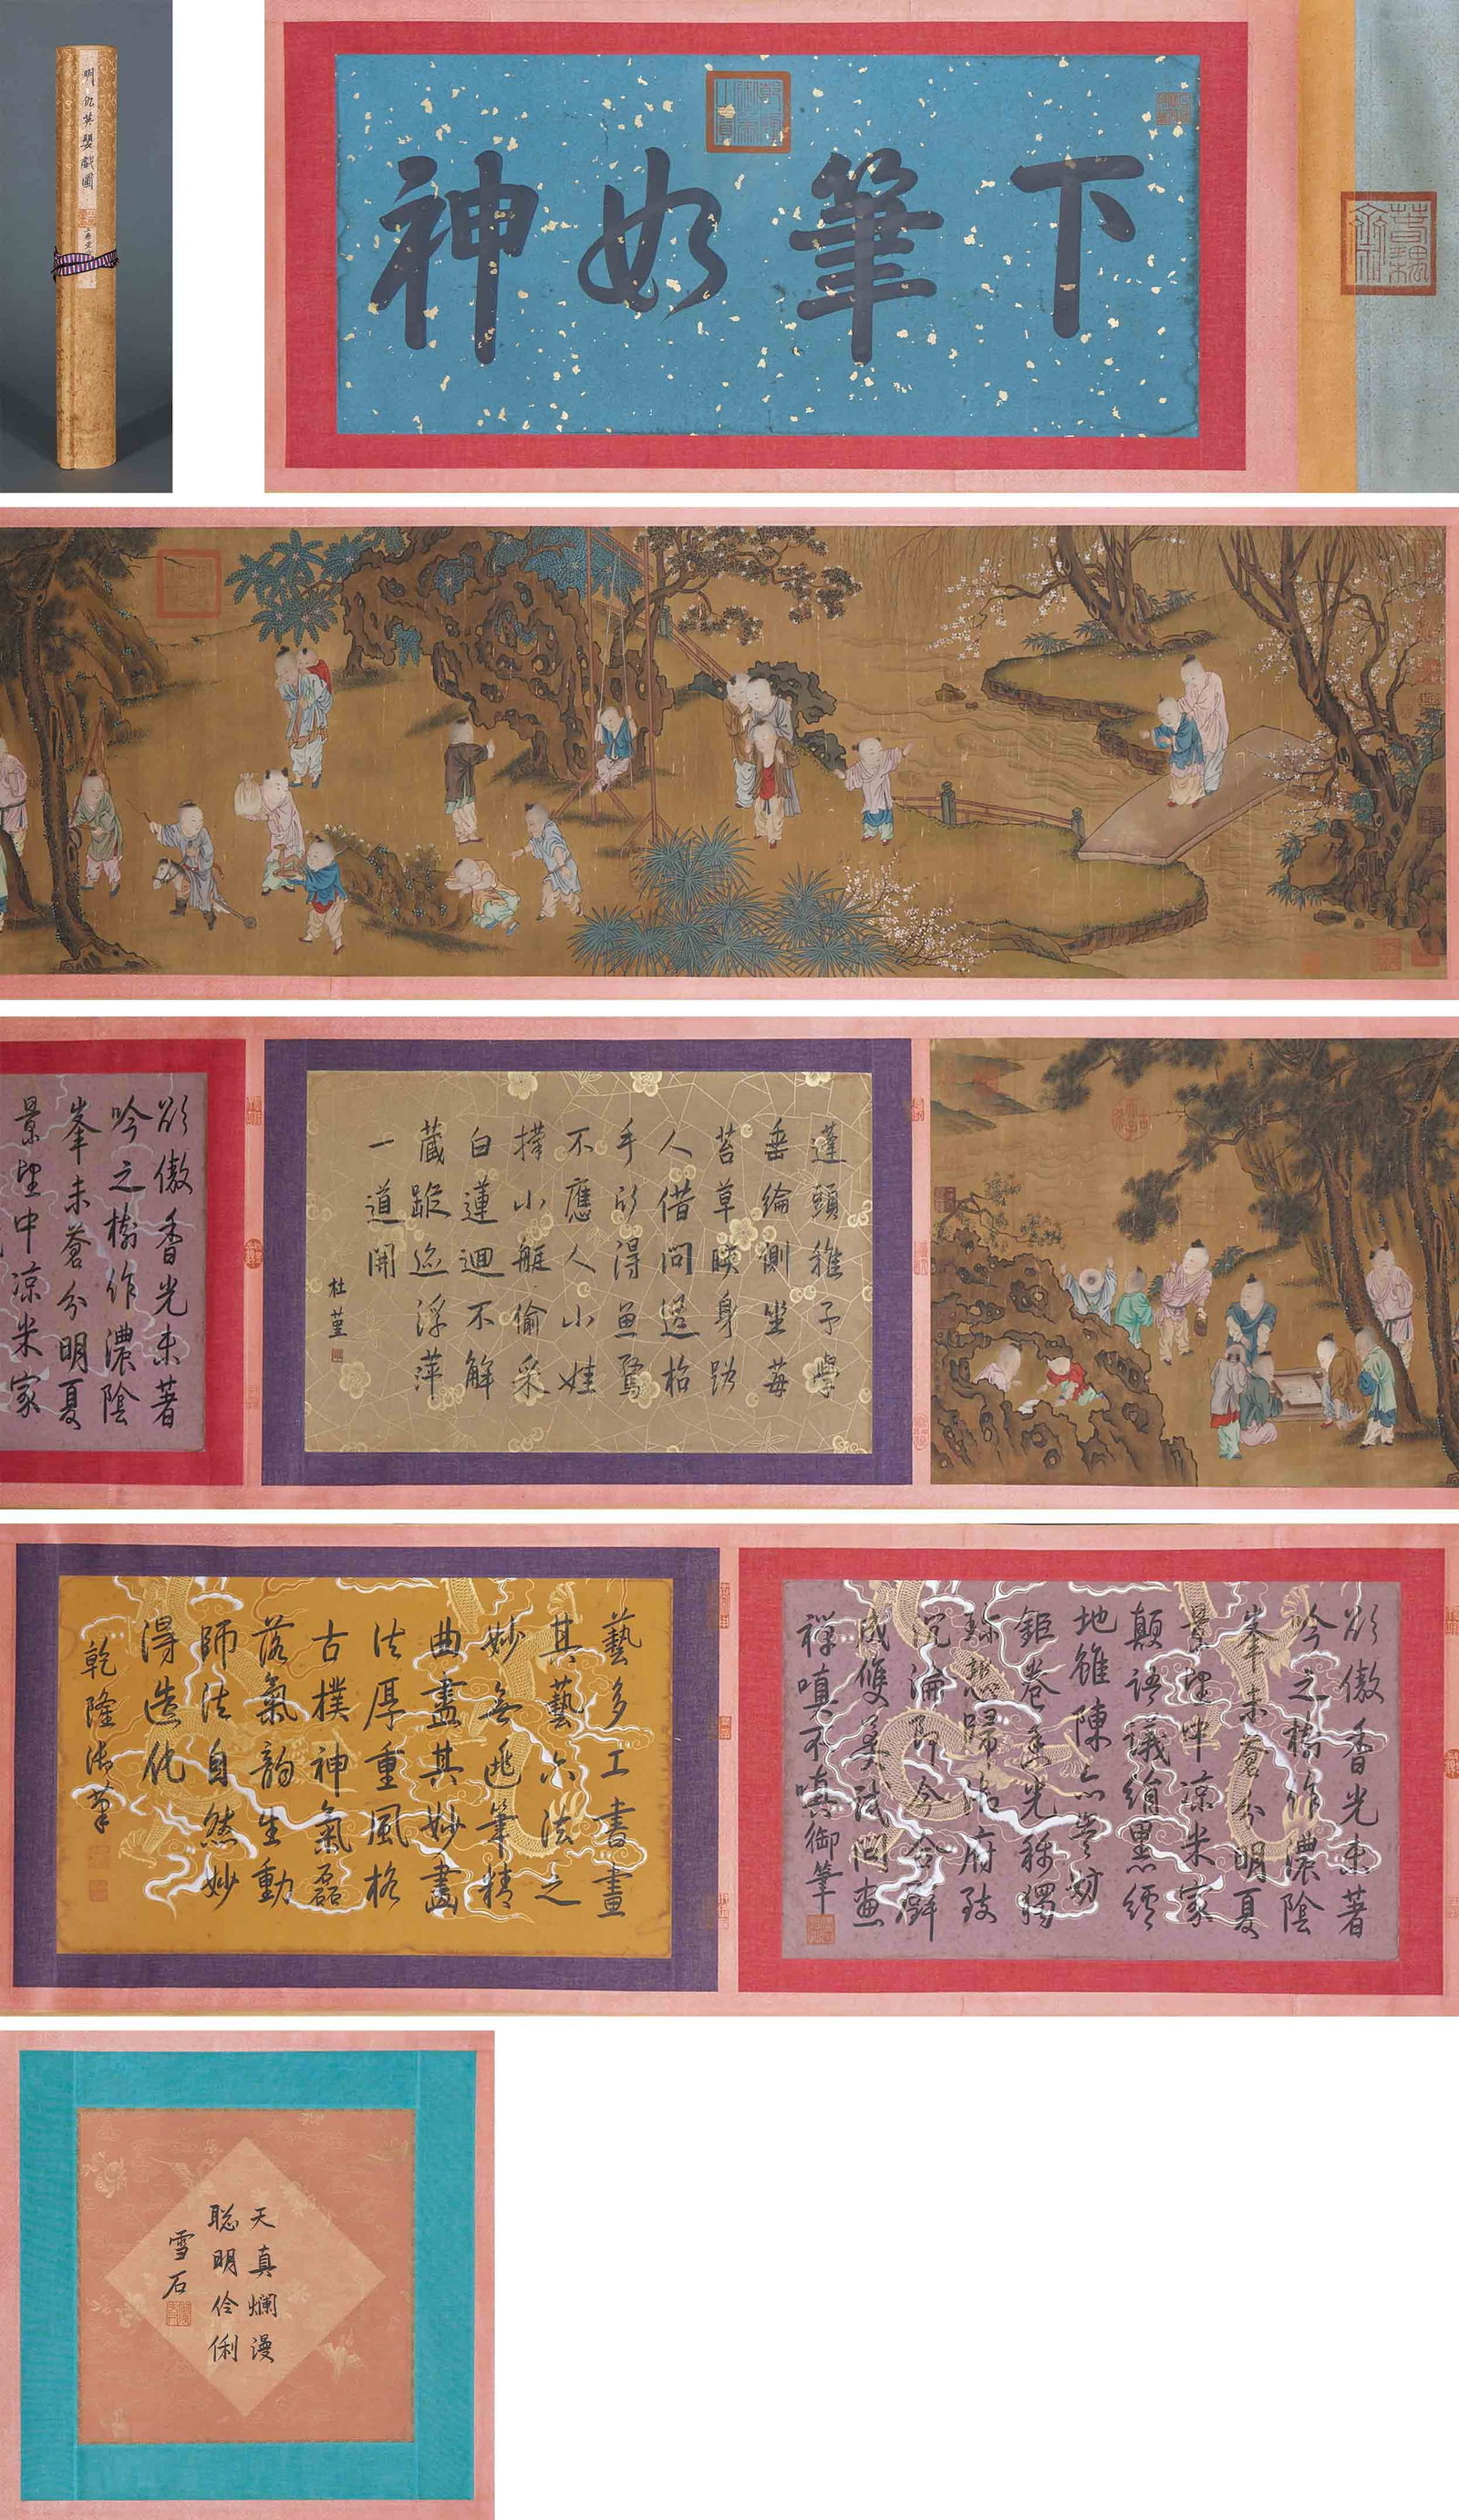 明仇英嬰戲圖
下筆如神
蓬頭稚子學
垂綸側坐莓
苔草映身路
人借問遥招
手得魚驚
不應人小娃
撑小艇偷采
白蓮迴不解
藏蹤迹浮萍
一道開
杜堇
傲香光未著
吟之樹作濃陰
峯未蒼分明夏
景望中凉米家
傲香光未著
吟之樹作濃陰
峯未蒼分明夏
景望中凉米家
顛語議絹黑
地雖陳豈妨
鉅卷香光稱獨
歸府致
沉淪即今合璧
成雙美試問畫
禪嗔不嗔御筆
藝多工書畫
其藝六法之
妙無逃筆精
曲盡其妙畫
法厚重風格
古樸神氣磊
落氣韵生動
師法自然妙
得造化
乾隆御筆
天真爛漫
聰明伶俐
雪石